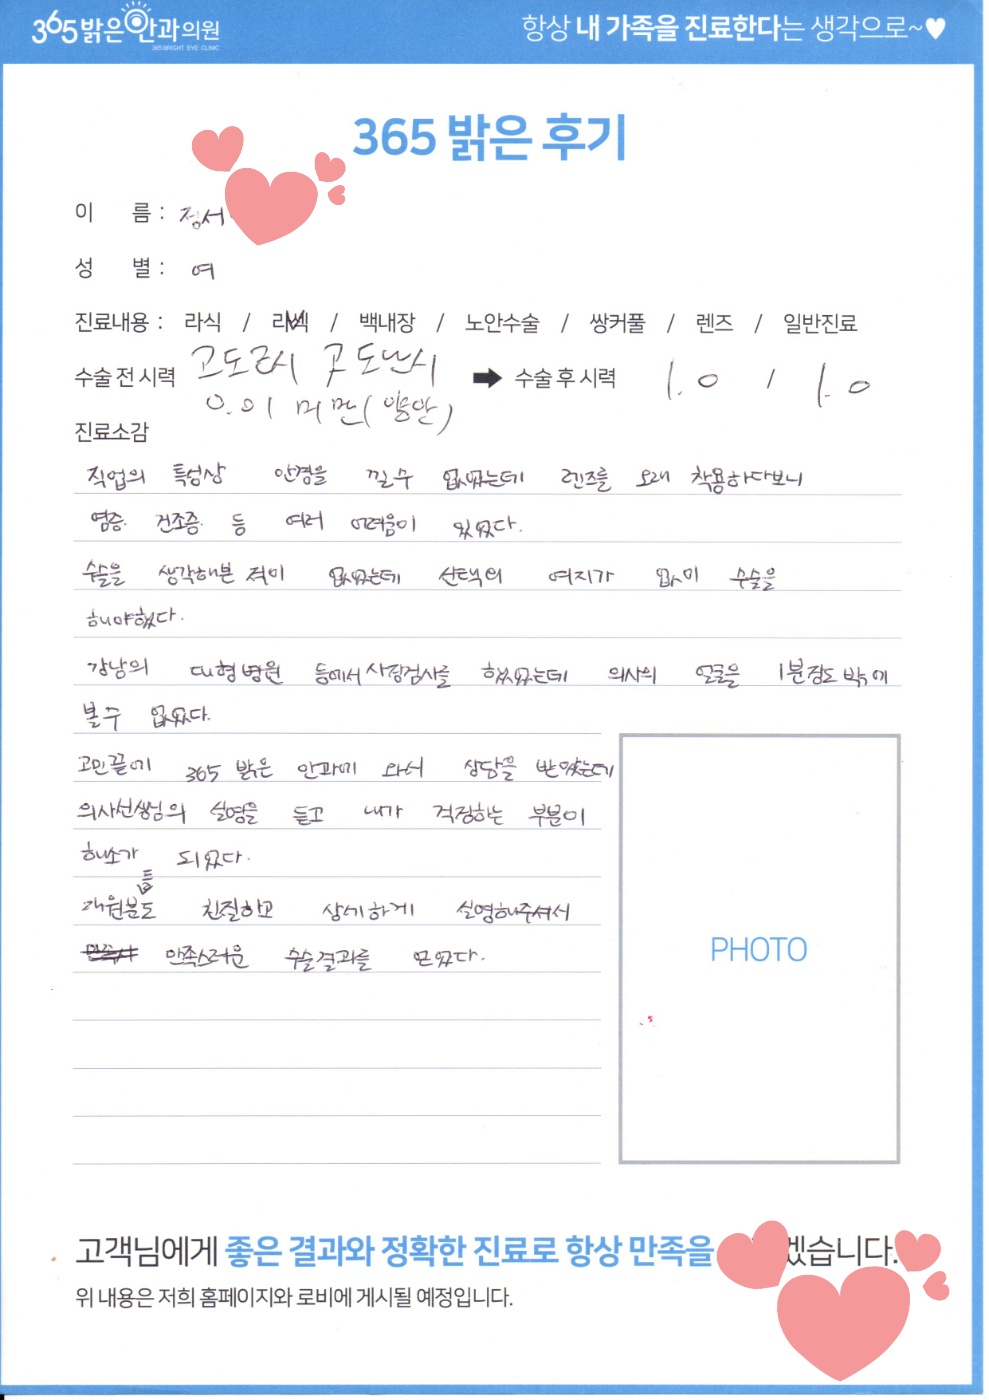 365밝은안과의원
365 BRIGHT EYE CLINIC
항상 내 가족을 진료한다는 생각으로~♥
365 밝은 후기
이 름 : 정서
성 별 : 여
진료내용 : 라식 / 라섹 / 백내장 / 노안수술 / 쌍커풀 / 렌즈 / 일반진료
수술 전 시력 고도근시 고도난시 ➡ 수술 후 시력 1.0 / 1.0
0.01 미만(양안)
진료소감
직업의 특성상 안경을 낄수 없었는데 렌즈를 오래 착용하다보니
염증. 건조증. 등 여러 어려움이 있었다.
수술을 생각해본 적이 없었는데 선택의 여지가 없이 수술을
해야했다.
강남의 대형병원 등에서 사장검사를 했었는데 의사의 얼굴을 1분정도 밖에
볼수 없었다.
고민끝에 365 밝은 안과에 와서 상담을 받았는데
의사선생님의 설명을 듣고 내가 걱정하는 부분이
해소가 되었다.
직원분들도 친절하고 상세하게 설명해주셔서
만족스러운 수술결과를 얻었다.
PHOTO
고객님에게 좋은 결과와 정확한 진료로 항상 만족을 겠습니다.
위 내용은 저희 홈페이지와 로비에 게시될 예정입니다.